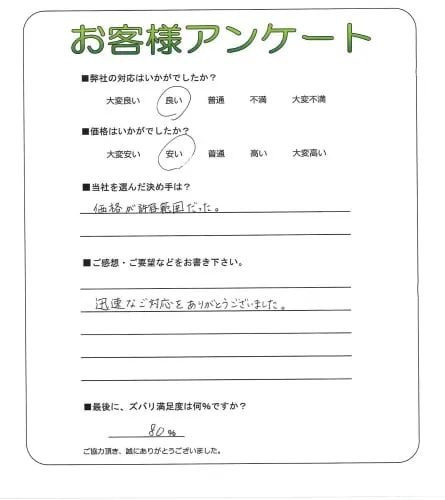 お客様アンケート
■弊社の対応はいかがでしたか?
大変良い 良い 普通 不満 大変不満
■価格はいかがでしたか?
大変安い 安い 普通 高い 大変高い
■当社を選んだ決め手は?
価格が許容範囲だった。
■ご感想・ご要望などをお書き下さい。
迅速なご対応をありがとうございました。
■最後に、ズバリ満足度は何%ですか?
80%
ご協力頂き、誠にありがとうございました。